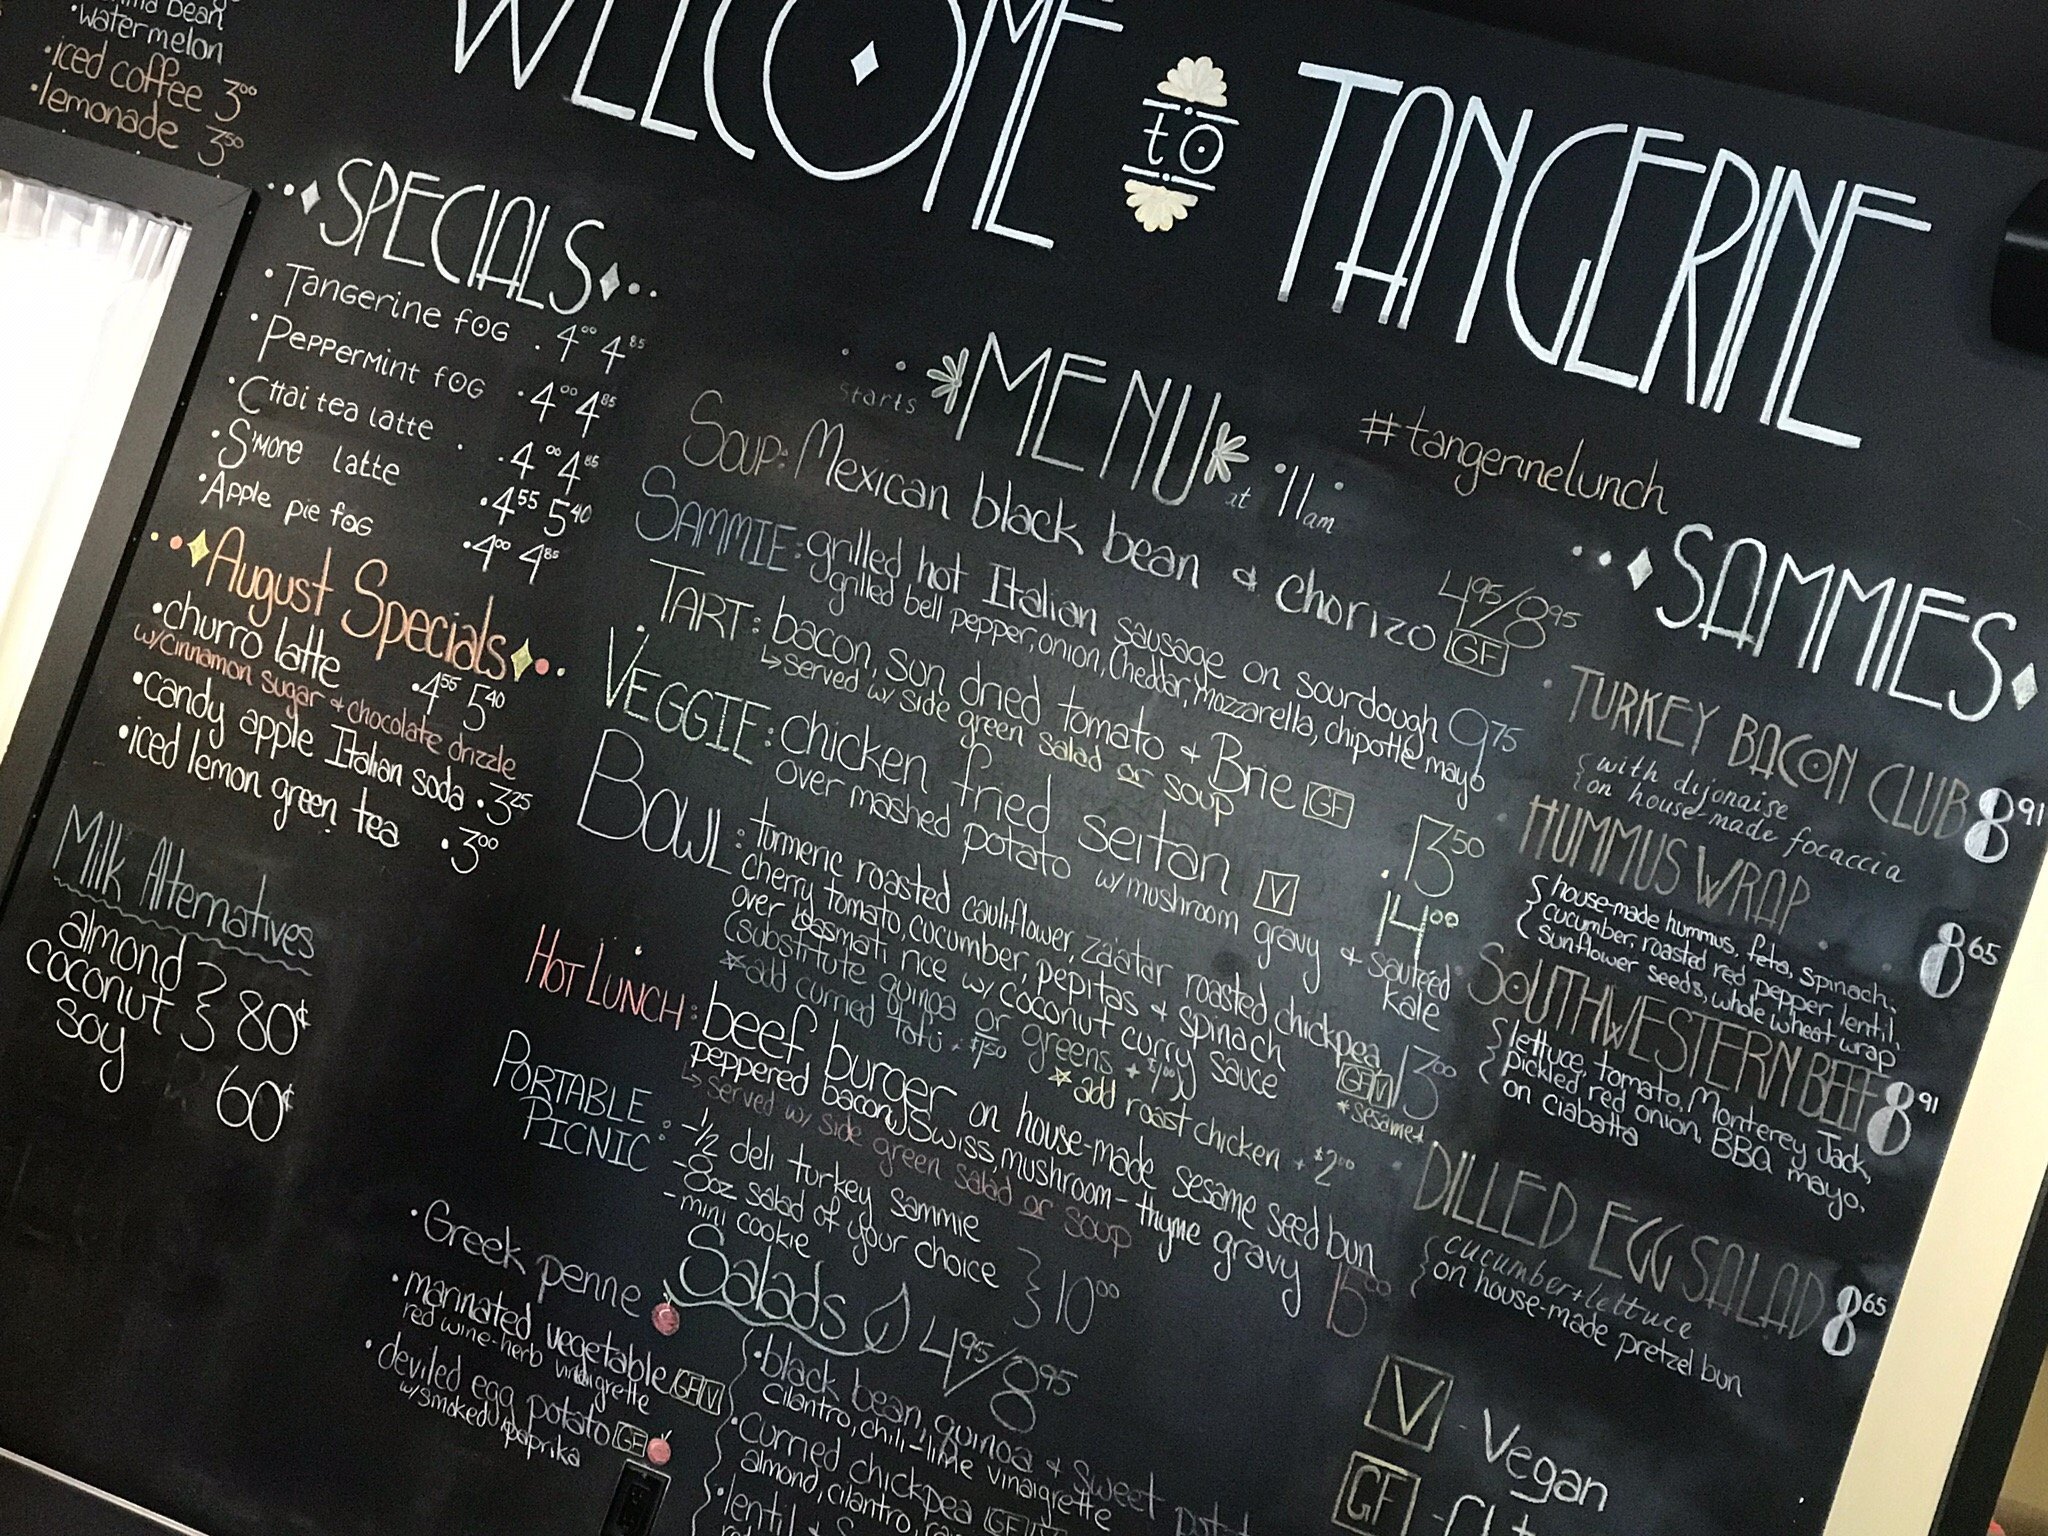 bean
• watermelon
• iced coffee 3⁰⁰
• lemonade 3⁵⁰
WELCOME to TANGERINE
#tangerinelunch
SPECIALS
• Tangerine fog . 4⁰⁰ 4⁸⁵
• Peppermint fog • 4⁰⁰ 4⁸⁵
• Chai tea latte . • 4⁰⁰ 4⁸⁵
• S'more latte • 4⁵⁵ 5⁴⁰
• Apple pie fog • 4⁰⁰ 4⁸⁵
August Specials
• churro latte • 4⁵⁵ 5⁴⁰
w/cinnamon sugar & chocolate drizzle
• candy apple Italian soda • 3²⁵
• iced lemon green tea • 3⁰⁰
Milk Alternatives
almond } 80¢
coconut
soy 60¢
MENU
starts at 11am
Soup: Mexican black bean & chorizo GF 4⁹⁵/8⁹⁵
SAMMIE: grilled hot Italian sausage on sourdough 9⁷⁵
grilled bell pepper, onion, Cheddar, mozzarella, chipotle mayo
TART: bacon, sun dried tomato & Brie GF . 13⁵⁰
↳ served w/ side green salad or soup
VEGGIE: chicken fried seitan V . 14⁰⁰
over mashed potato w/ mushroom gravy & sautéed kale
BOWL: turmeric roasted cauliflower, za'atar roasted chickpea, 13⁰⁰
cherry tomato, cucumber, pepitas & spinach GF V
over basmati rice w/ coconut curry sauce *sesame*
(substitute quinoa or greens + $1⁰⁰)
*add curried tofu + $1⁵⁰ *add roast chicken + $2⁰⁰
HOT LUNCH: beef burger on house-made sesame seed bun
peppered bacon, Swiss, mushroom-thyme gravy 15⁰⁰
↳ served w/ side green salad or soup
PORTABLE PICNIC: -1/2 deli turkey sammie
-8oz salad of your choice } 10⁰⁰
-mini cookie
Salads 4⁹⁵/8⁹⁵
• Greek penne
• marinated vegetable GF V
red wine-herb vinaigrette
• deviled egg potato GF
w/smoked paprika
• black bean, quinoa & sweet
cilantro, chili-lime vinaigrette
• curried chickpea GF
almond, cilantro,
• lentil &
SAMMIES
TURKEY BACON CLUB 8⁹¹
{ with dijonaise
on house-made focaccia
HUMMUS WRAP . 8⁶⁵
{ house-made hummus, feta, spinach,
cucumber, roasted red pepper lentil,
sunflower seeds, whole wheat wrap
SOUTHWESTERN BEEF 8⁹¹
{ lettuce, tomato, Monterey Jack,
pickled red onion, BBQ mayo,
on ciabatta
DILLED EGG SALAD 8⁶⁵
{ cucumber + lettuce
on house-made pretzel bun
V - Vegan
GF -